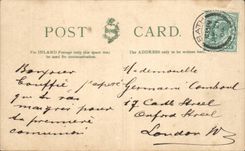 POST CARD.
For INLAND Postage only this space may be used for communication.
The ADDRESS only to be written here.
BATH
Bonjour
j'espère
que tu vas
maigrir pour
ta première
communion
Mademoiselle
Germaine
17
Oxford Street
London W